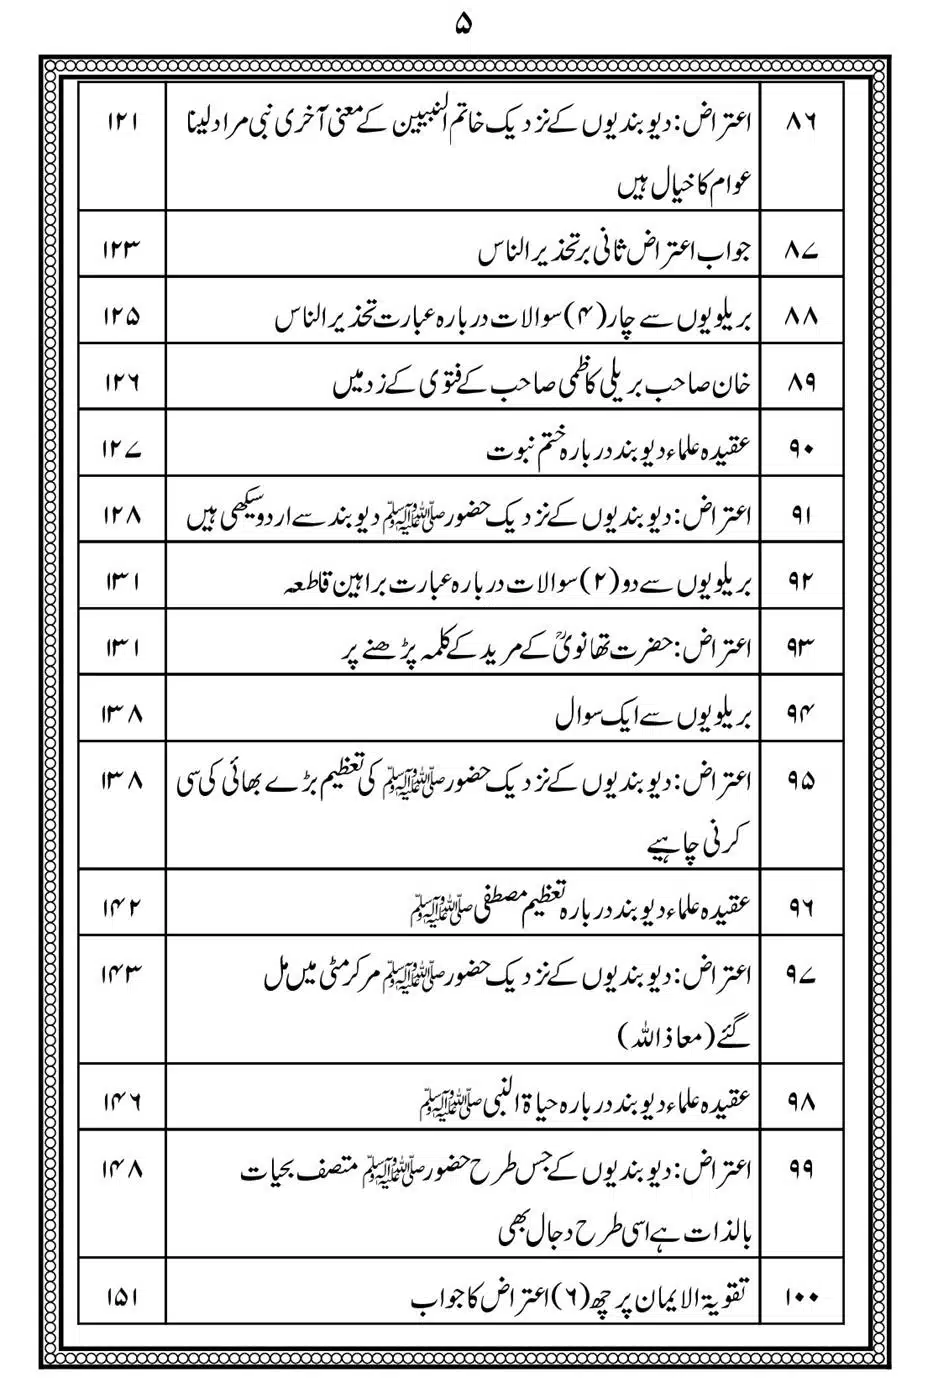 ۵
۸۶ اعتراض: دیوبندیوں کے نزدیک خاتم النبیین کے معنی آخری نبی مراد لینا ۱۲۱
عوام کا خیال ہیں
۸۷ جواب اعتراض ثانی بر تحذیر الناس ۱۲۳
۸۸ بریلویوں سے چار (۴) سوالات دربارہ عبارت تحذیر الناس ۱۲۵
۸۹ خان صاحب بریلی کاظمی صاحب کے فتوی کے زد میں ۱۲۶
۹۰ عقیدہ علماء دیوبند دربارہ ختم نبوت ۱۲۷
۹۱ اعتراض: دیوبندیوں کے نزدیک حضور ﷺ دیوبند سے اردو سیکھی ہیں ۱۲۸
۹۲ بریلویوں سے دو (۲) سوالات دربارہ عبارت براہین قاطعہ ۱۳۱
۹۳ اعتراض: حضرت تھانویؒ کے مرید کے کلمہ پڑھنے پر ۱۳۱
۹۴ بریلویوں سے ایک سوال ۱۳۸
۹۵ اعتراض: دیوبندیوں کے نزدیک حضور ﷺ کی تعظیم بڑے بھائی کی سی ۱۳۸
کرنی چاہیے
۹۶ عقیدہ علماء دیوبند دربارہ تعظیم مصطفی ﷺ ۱۴۲
۹۷ اعتراض: دیوبندیوں کے نزدیک حضور ﷺ مر کر مٹی میں مل ۱۴۳
گئے (معاذ اللہ)
۹۸ عقیدہ علماء دیوبند دربارہ حیاۃ النبی ﷺ ۱۴۶
۹۹ اعتراض: دیوبندیوں کے جس طرح حضور ﷺ متصف بحیات ۱۴۸
بالذات ہے اسی طرح دجال بھی
۱۰۰ تقویۃ الایمان پر چھ (۶) اعتراض کا جواب ۱۵۱